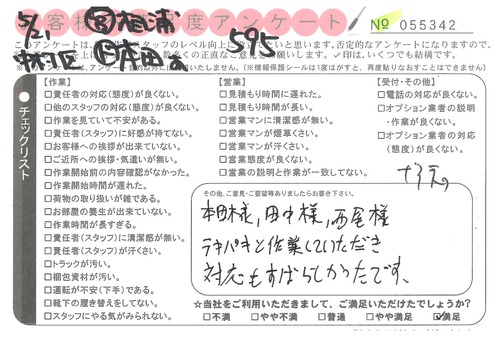 お客様満足度アンケート
№ 055342
5/21
相浦
595
中村区
本田
このアンケートは、スタッフのレベル向上に
否定的なアンケートになりますので、
をお願いします。✓印は、いくつでも結構です。
(※情報保護シールは1度はがすと、再度貼りなおすことはできません)
チェックリスト
【作業】
□責任者の対応(態度)が良くない。
□他のスタッフの対応(態度)が良くない。
□作業を見ていて不安がある。
□責任者(スタッフ)に好感が持てない。
□お客様への挨拶が出来ていない。
□ご近所への挨拶・気遣いが無い。
□作業開始前の内容確認がなかった。
□作業開始時間が遅れた。
□荷物の取り扱いが雑である。
□お部屋の養生が出来ていない。
□作業時間が長すぎる。
□責任者(スタッフ)に清潔感が無い。
□責任者(スタッフ)が汗くさい。
□トラックが汚い。
□梱包資材が汚い。
□運転が不安(下手)である。
□靴下の履き替えをしてない。
□スタッフにやる気がみられない。
【営業】
□見積もり時間に遅れた。
□見積もり時間が長い。
□営業マンに清潔感が無い。
□営業マンが煙草くさい。
□営業マンが汗くさい。
□営業態度が良くない。
□営業の説明と作業が一致してない。
【受付・その他】
□電話の対応が良くない。
□オプション業者の説明
・作業が良くない。
□オプション業者の対応
(態度)が良くない。
その他、ご意見・ご要望等ありましたらお書き下さい。
本田様,田中様,西尾様
テキパキと作業していただき
対応もすばらしかったです、
☆当社をご利用いただきまして、ご満足いただけたでしょうか?
□不満 □やや不満 □普通 □やや満足 ☑満足